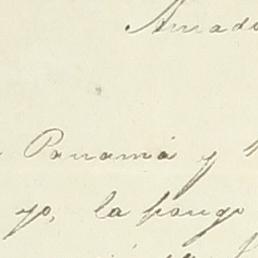 Amado
Panamá y
yo, la pongo